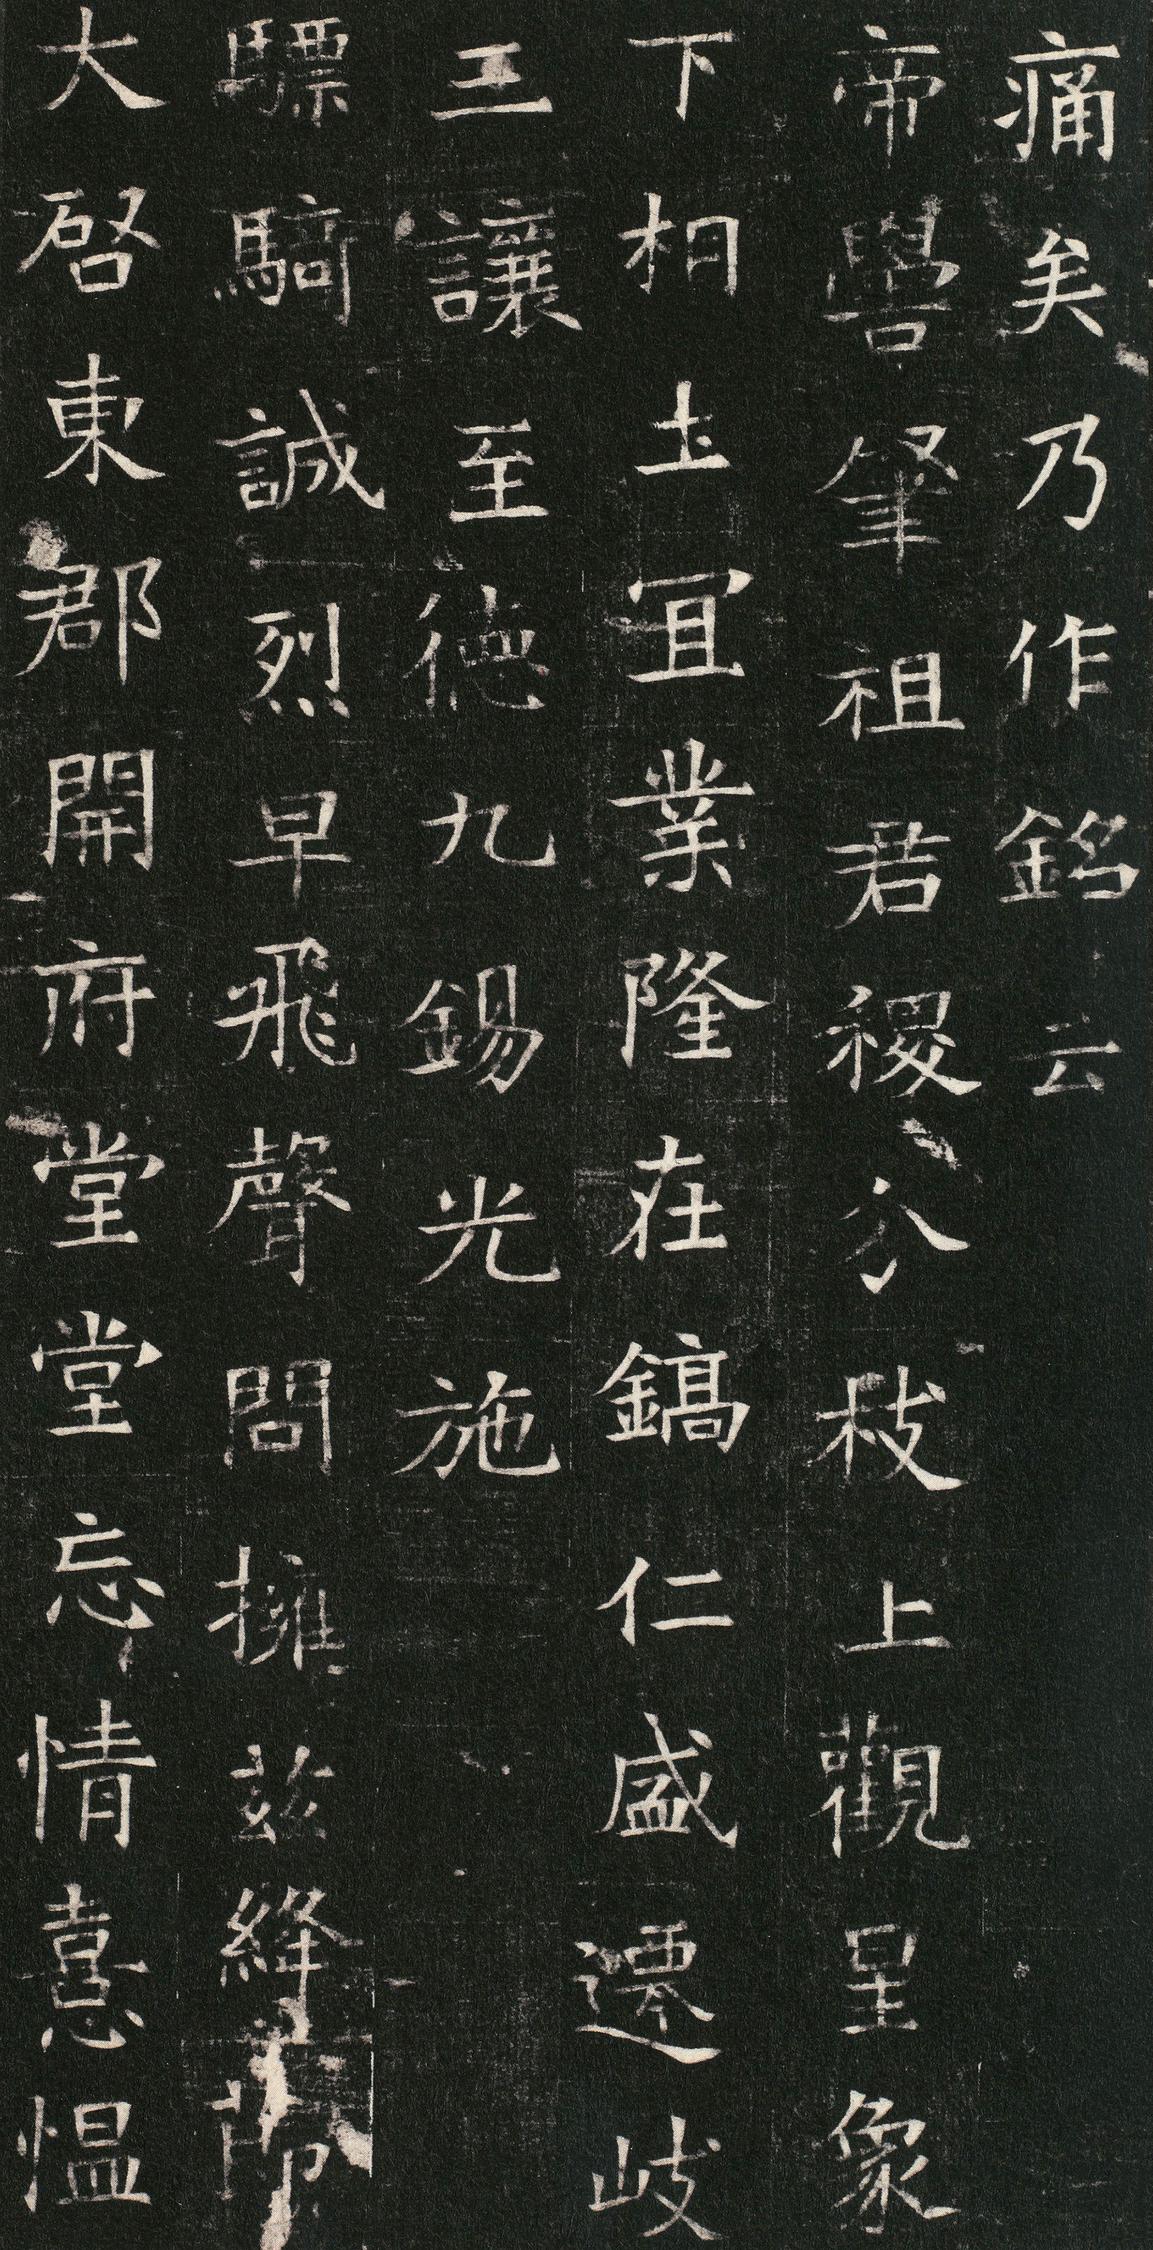 痛矣乃作銘云
帝嚳肇祖君稷分枝上觀星象
下相土宜業隆在鎬仁盛遷岐
三讓至德九錫光施
驃騎誠烈早飛聲問擁茲絳節
大啓東郡開府堂堂忘情憙慍